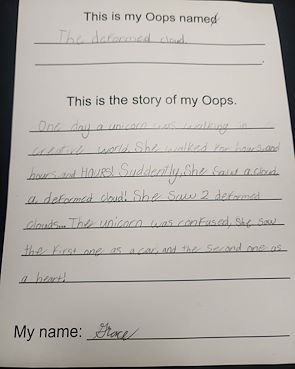 This is my Oops named
The deformed cloud.
This is the story of my Oops.
One day a unicorn was walking in
creative world. She walked for hours and
hours and HOURS! Suddenly, She saw a cloud
a deformed cloud! She saw 2 deformed
clouds... The unicorn was confused, She saw
the first one as a car, and the second one as
a heart!
My name: Grace